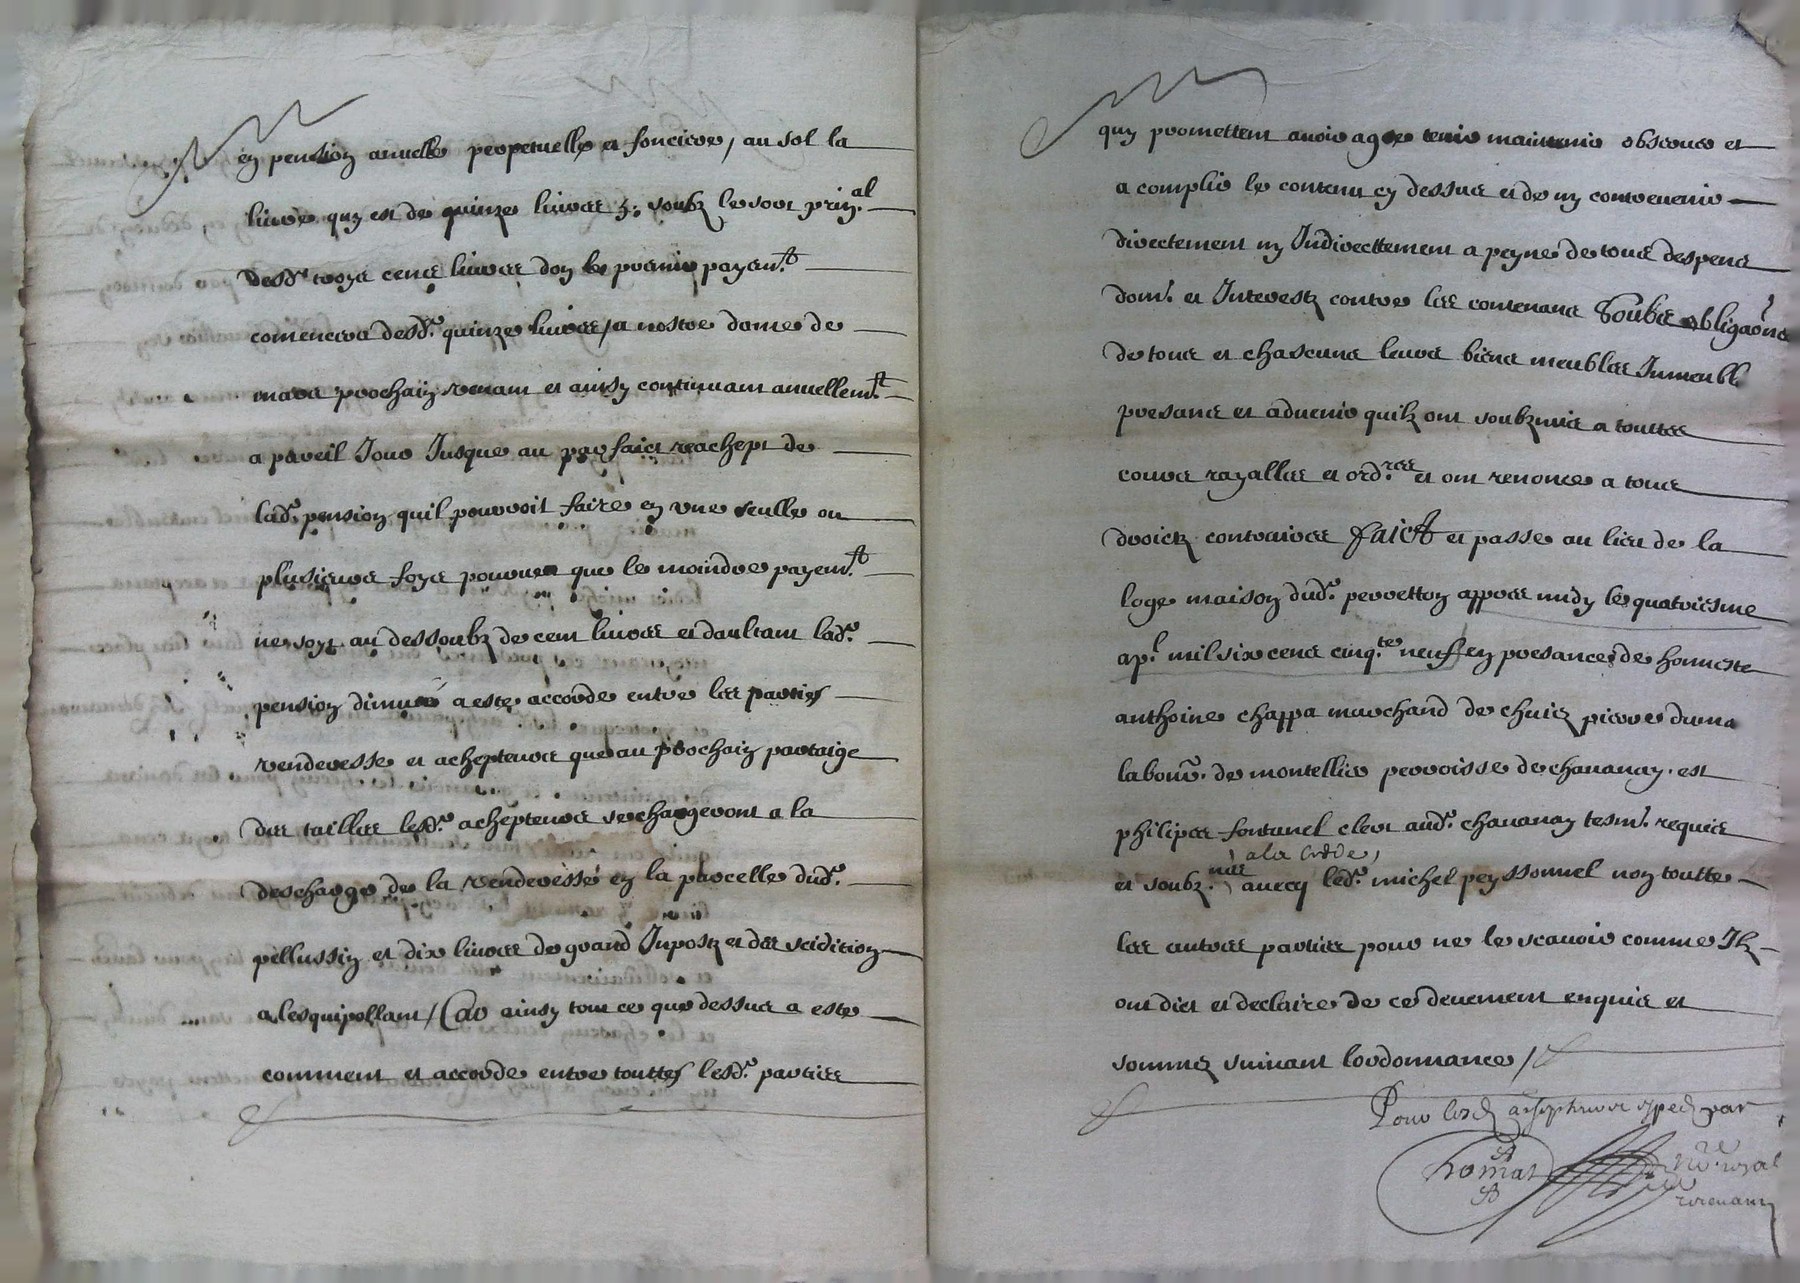 en pension annuelle perpetuelle et fonciere / au sol la
livre quy est de quinze livres soubz le sort prin.al
desd.s troys cens livres don le premier payem.t
comencera desd.s quinze livres / a nostre dame de
mars prochain venant et ainsy continuant annuellem.t
a pareil Jour Jusque au parfaict reachept de
lad.e pension quil pourroit faire en une seulle ou
plusieurs foys pourveu que le moindre payem.t
ne soyt au dessoubz de cent livres et daultant lad.e
pension dimué a este accorde entre les parties
venderesse et achepteurs que au prochain partaige
des tailles lesd.s achepteurs se chargeront a la
descharge de la venderesse en la parcelle dud.
pellussin et dix livres de grand Inpostz et des
a lesquipollant / Car ainsy tout ce que dessus a este
comment et accorde entre touttes lesd.s parties
quy promettent avoir agre tenir maintenir observer et
acomplir le contenu cy dessus et de ny contrevenir
directement ny Indirecttement a peyne de tous despens
dom.s et Interestz contre les contenans Soubz obligaõns
de tous et chascuns leurs biens meubles Inmeubl.
presans et advenir quilz ont soubzmis a touttes
cours rayalles et ord.res et ont renonce a tous
droictz contraires faict et passe au lieu de la
loge maison dud. perretton appres midy le quatriesme
ap.l mil six cens cinq.te neuf en presances de honneste
anthoine chappa marchand de chuiz pierre duma
labour. de montellier perroisse de chavanay. est
philipes fontanel clerc aud. chavanay tesm.s requis
et soubz.nes a la cedde avecq led. michel peyssonnel non toutte
les autres parties pour ne le scavoir comme Ilz
ont dict et declaire de ce deuement enquis et
sommez suivant lordonnance /
Pour lesd achepteurs exped par
Thomas n.re royal